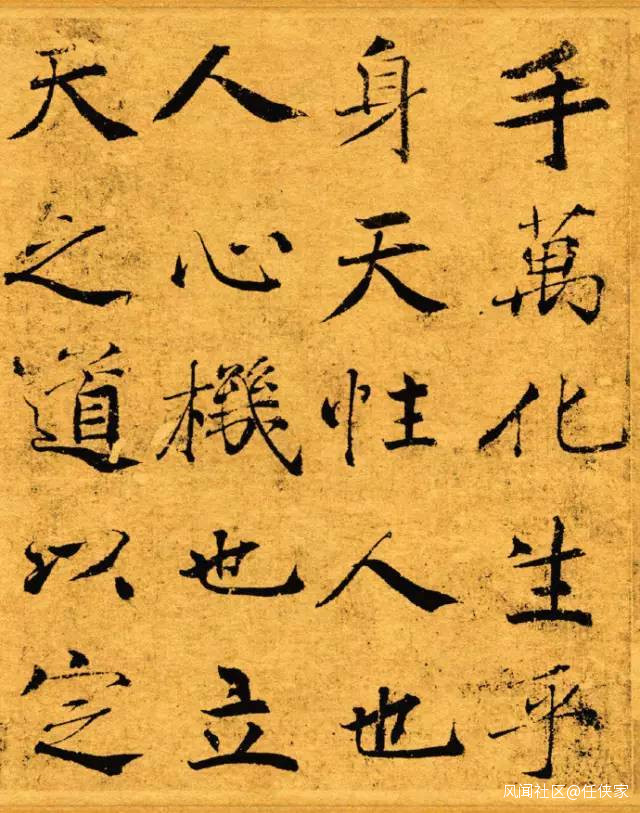 手萬化生乎
身天性人也
人心機也立
天之道以定
风闻社区@任侠家